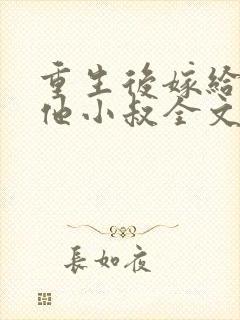 重生後嫁給
他小叔全文
長如夜